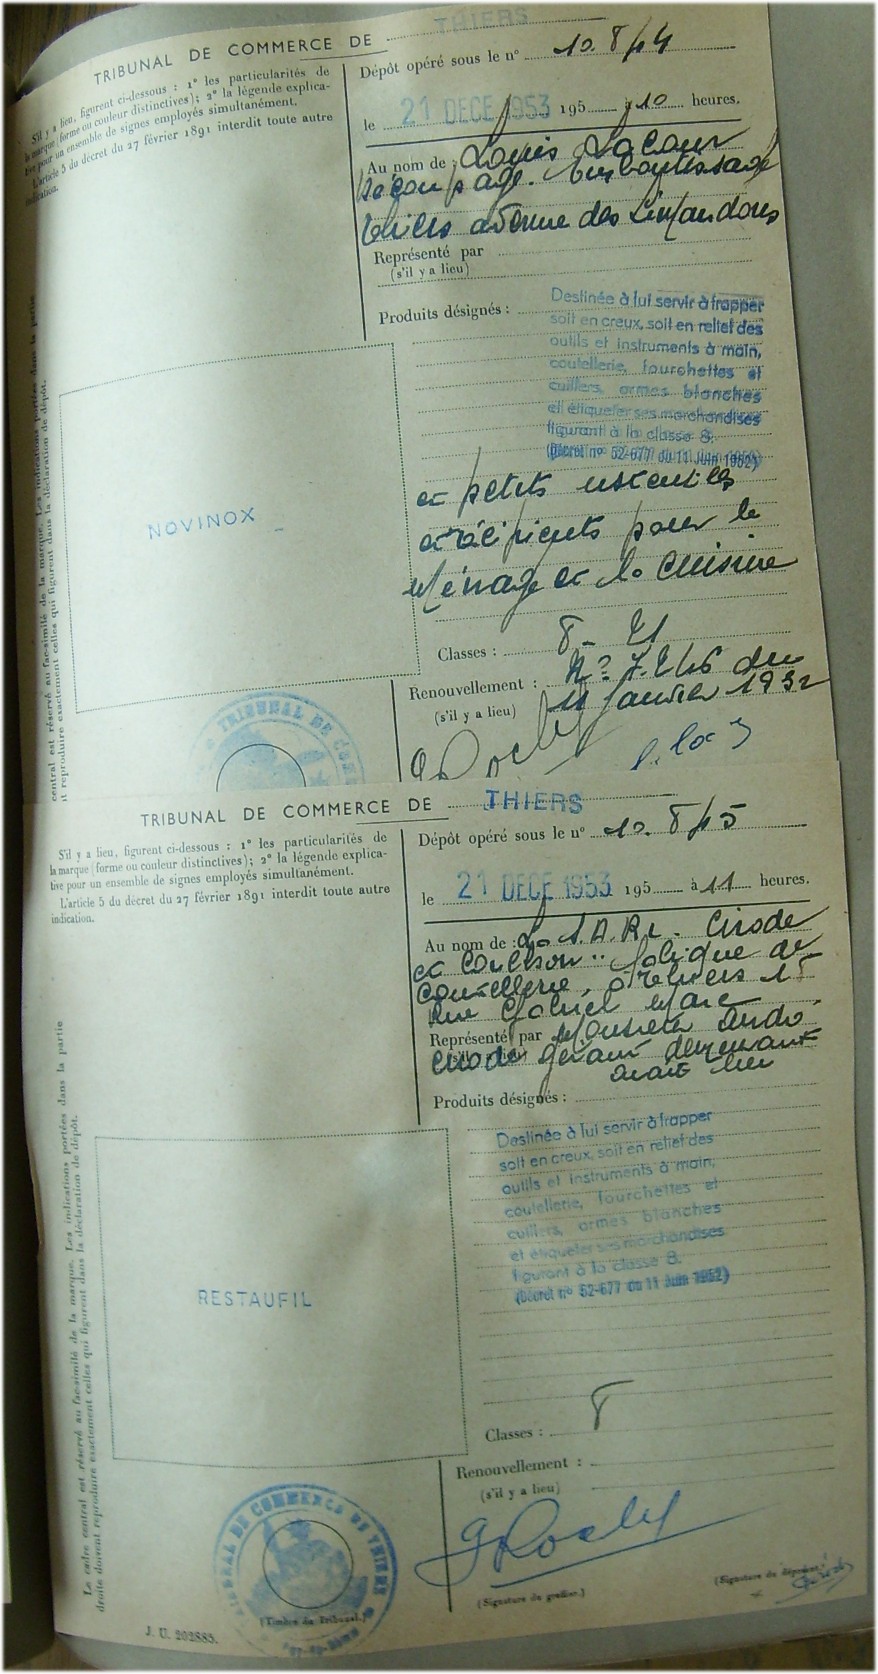 TRIBUNAL DE COMMERCE DE THIERS
S'il y a lieu, figurent ci-dessous : 1° les particularités de
la marque (forme ou couleur distinctives); 2° la légende explica-
tive pour un ensemble de signes employés simultanément.
L'article 5 du décret du 27 février 1891 interdit toute autre
indication.
Dépôt opéré sous le n° 10.844
le 21 DECE 1953 195 à 10 heures.
Au nom de : Louis Lacour
Découpage. Emboutissage
Thiers avenue des Limandons
Représenté par
(s'il y a lieu)
Produits désignés :
Destinée à lui servir à frapper
soit en creux, soit en relief des
outils et instruments à main,
coutellerie, fourchettes et
cuillers, armes blanches
et étiqueter ses marchandises
figurant à la classe 8.
(Décret n° 52-677 du 11 Juin 1952)
et petits ustensiles
et récipients pour le
ménage et la cuisine
NOVINOX
Classes : 8 - 21
Renouvellement : N° 7.246 du
(s'il y a lieu) 11 janvier 1932
central est réservé au fac-similé de la marque. Les indications portées dans la partie
it reproduire exactement celles qui figurent dans la déclaration de dépôt.
TRIBUNAL DE COM
TRIBUNAL DE COMMERCE DE THIERS
S'il y a lieu, figurent ci-dessous : 1° les particularités de
la marque (forme ou couleur distinctives); 2° la légende explica-
tive pour un ensemble de signes employés simultanément.
L'article 5 du décret du 27 février 1891 interdit toute autre
indication.
Dépôt opéré sous le n° 10.845
le 21 DECE 1953 195 à 11 heures.
Au nom de : La S.A.R.L. Cirode
et Coulson fabrique de
Coutellerie, à Thiers 15
Rue Gabriel Marc
Représenté par Monsieur
Cirode gérant demeurant
audit lieu
Produits désignés :
Destinée à lui servir à frapper
soit en creux, soit en relief des
outils et instruments à main,
coutellerie, fourchettes et
cuillers, armes blanches
et étiqueter ses marchandises
figurant à la classe 8.
(Décret n° 52-677 du 11 Juin 1952)
RESTAUFIL
Classes : 8
Renouvellement :
(s'il y a lieu)
Le cadre central est réservé au fac-similé de la marque. Les indications portées dans la partie
droite doivent reproduire exactement celles qui figurent dans la déclaration de dépôt.
TRIBUNAL DE COMMERCE DE THIERS
(Timbre du Tribunal.)
(Signature du greffier.)
(Signature du déposant.)
J. U. 202885.